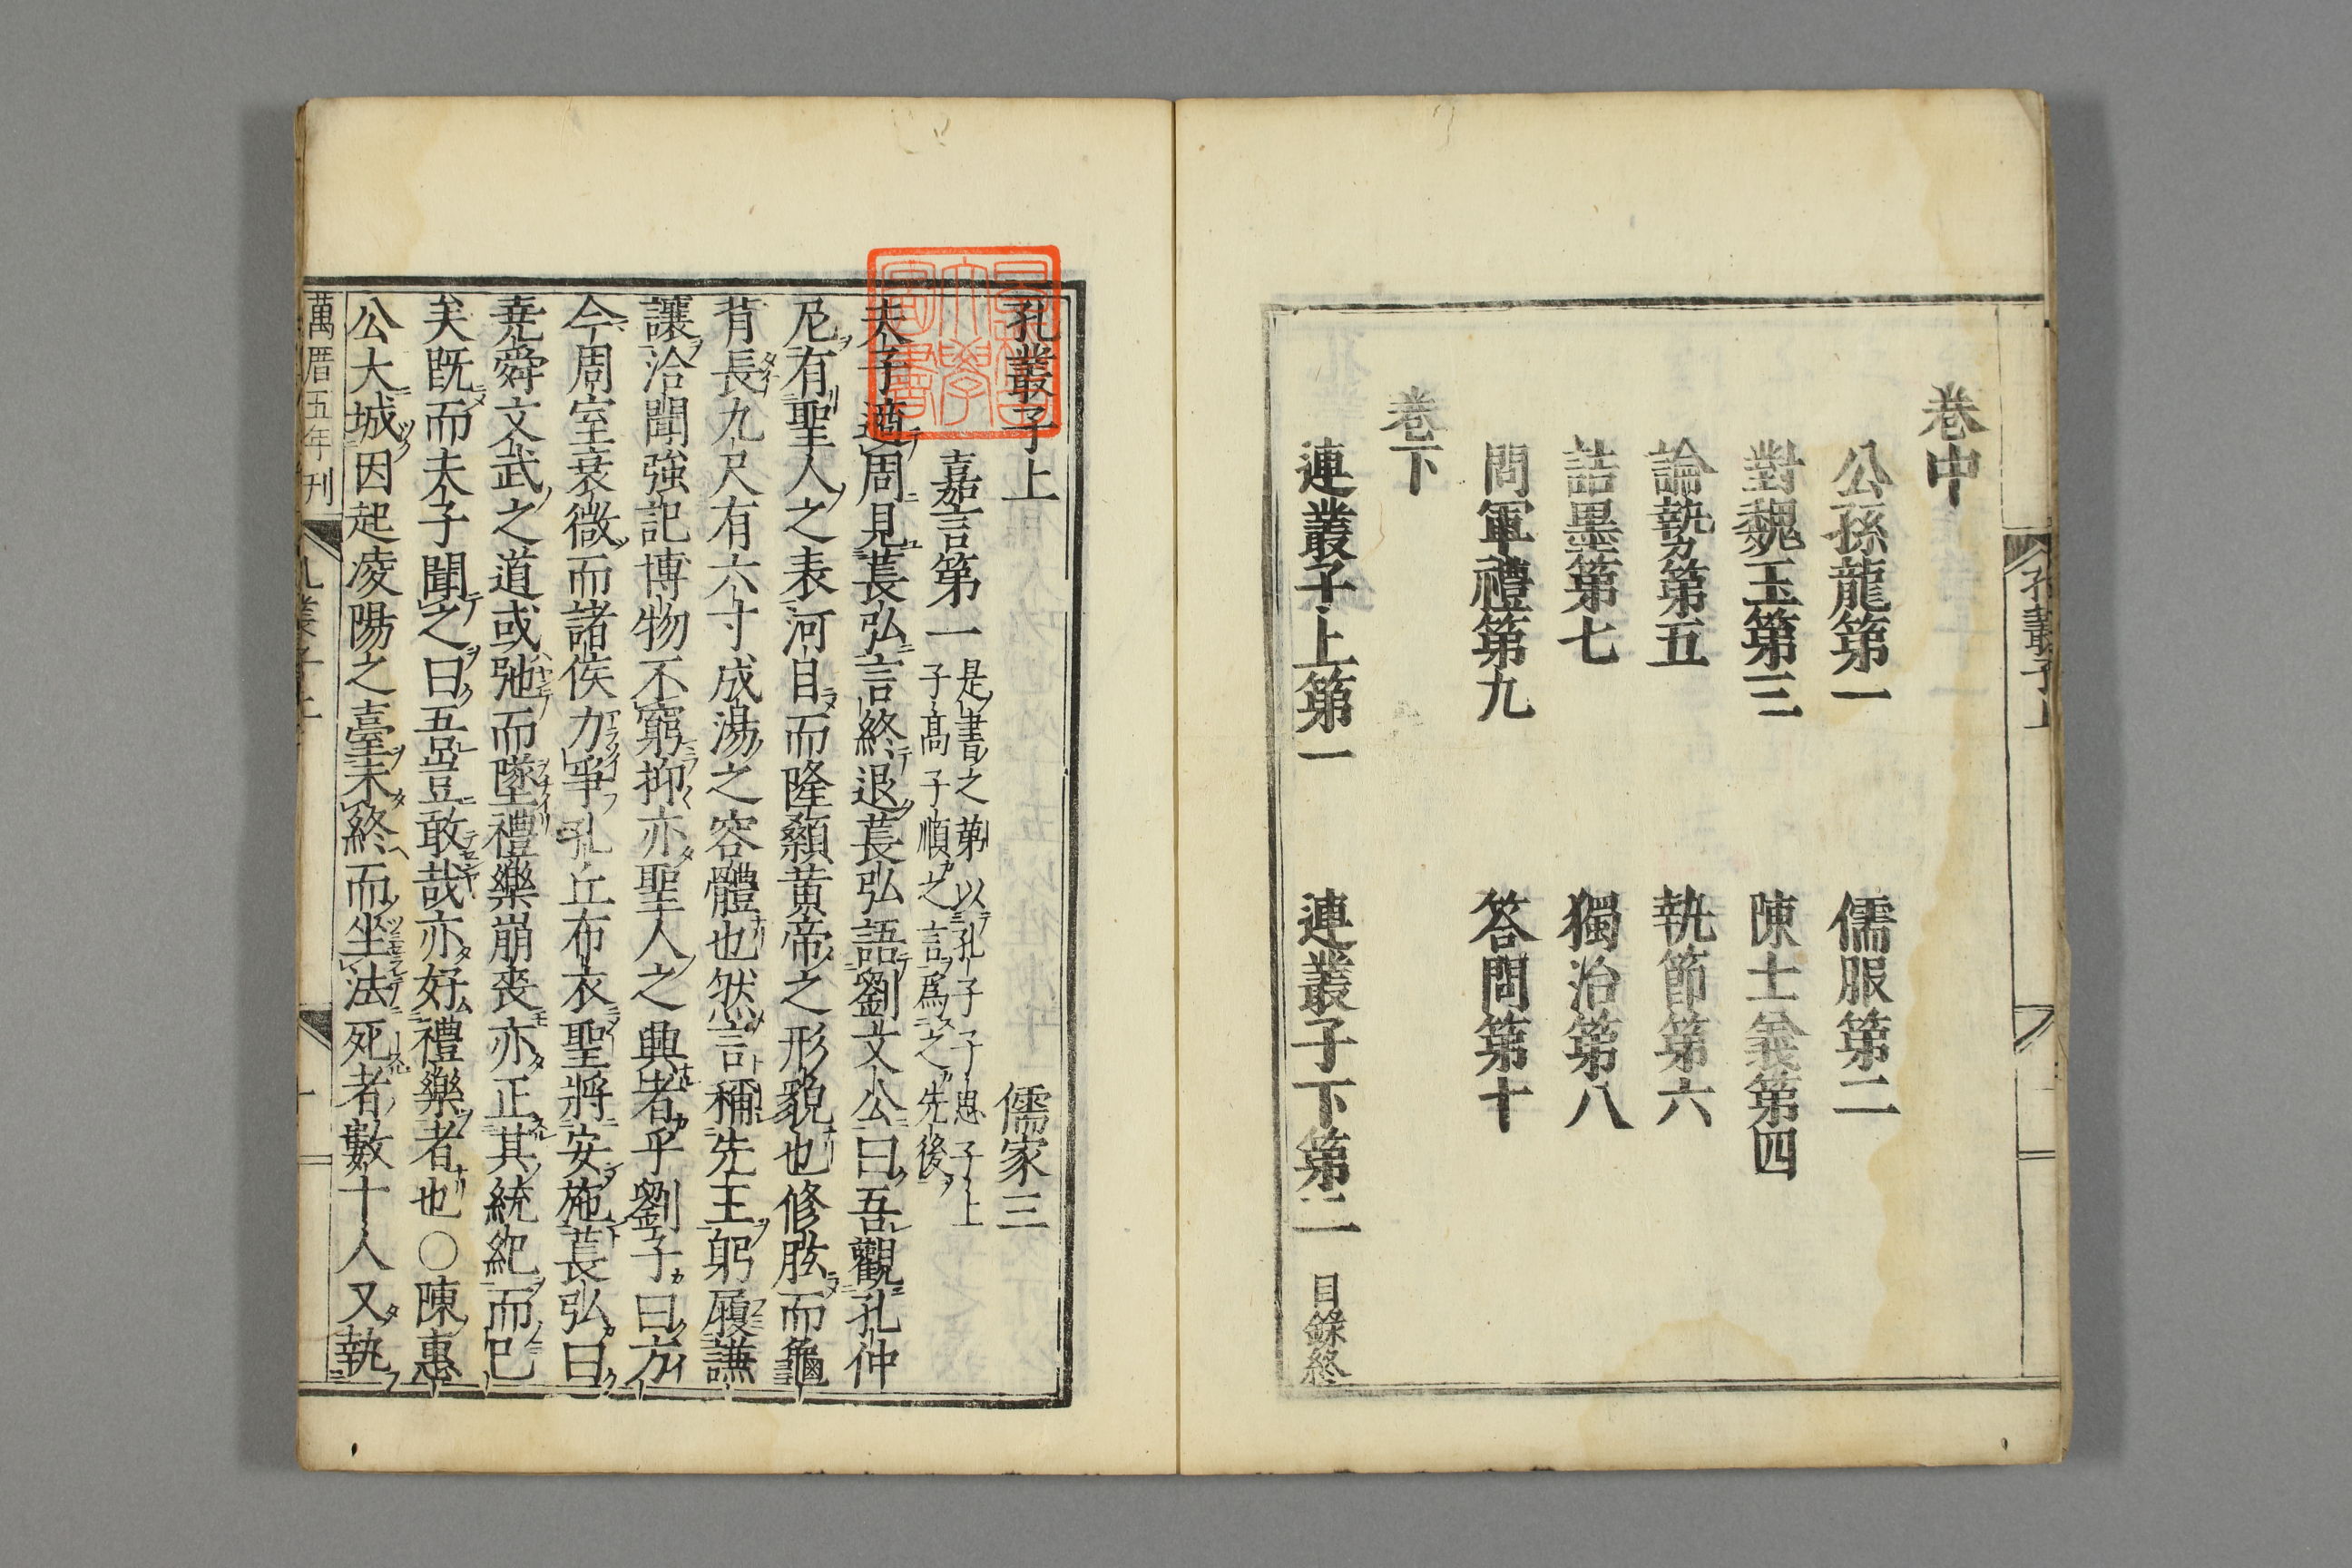 孔叢子上
卷中
公孫龍第一 儒服第二
對魏王第三 陳士義第四
論勢第五 執節第六
詰墨第七 獨治第八
問軍禮第九 答問第十
卷下
連叢子上第一 連叢子下第二 目錄終
孔叢子上 儒家三
嘉言第一 是書之第以孔子子思子上
子高子順之言爲之先後
夫子適周見萇弘言終退萇弘語劉文公曰吾觀孔仲
尼有聖人之表河目而隆顙黄帝之形貌也修肱而龜
背長九尺有六寸成湯之容體也然言稱先王躬履謙
讓洽聞強記博物不窮抑亦聖人之興者乎劉子曰方
今周室衰微而諸侯力爭孔丘布衣聖將安施萇弘曰
堯舜文武之道或弛而墜禮樂崩喪亦正其統紀而已
矣既而夫子聞之曰吾豈敢哉亦好禮樂者也〇陳惠
公大城因起凌陽之臺未終而坐法死者數十人又執
萬曆五年刊